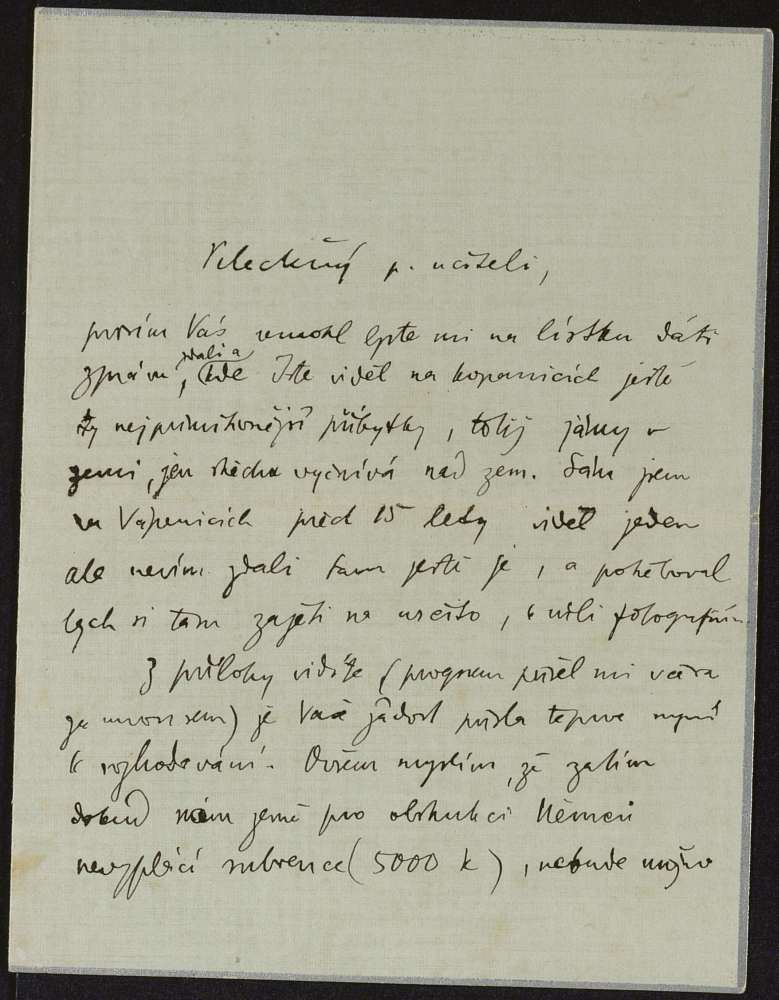 Vzáctný p. učiteli,
prosím Vás nemohl byste mi na lístku dáti
zprávu, zdali a kde Jste viděl na kopanicích ještě
ty nejprimitivnější příbytky, totiž jámy v
zemi, jen střecha vyčnívá nad zem. Sám jsem
na Vápenicích před 15 lety viděl jeden
ale nevím zdali tam ještě je, a potřeboval
bych si tam zajeti na určito, k vůli fotografiím.
Z přílohy vidíte (program přišel mi včera
že Vaše žádost přišla teprve nyní
k rozhodování. Ovšem myslím, že zatím
dokud nám země pro obstrukci Němců
nevyplácí subvence (5000 k), nebude možno